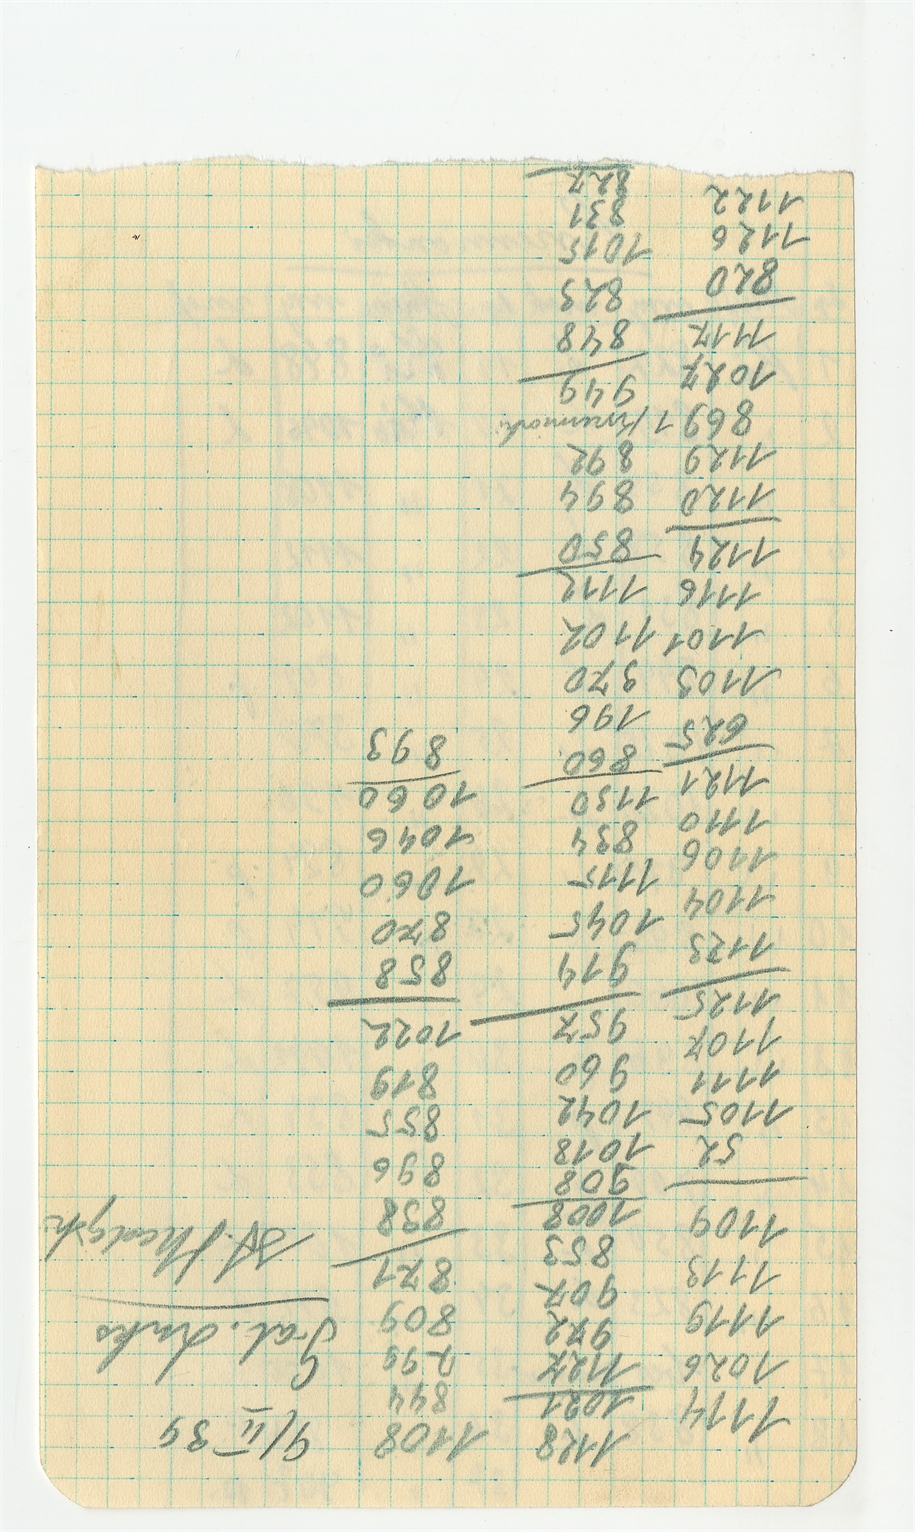 1114
1026
1119
1113
1109
52
1105
1111
1107
1125
1123
1104
1106
1110
1121
625
1103
1101
1116
1124
1120
1129
869
1027
1117
820
1126
1122
1128
1021
1127
972
907
853
1008
908
1018
1042
960
957
914
1045
1115
894
1130
860
196
970
1102
1112
850
894
892
949
848
823
1015
831
827
1108
844
299
809
871
838
896
855
819
1022
858
870
1060
1046
1060
893
9/II 39